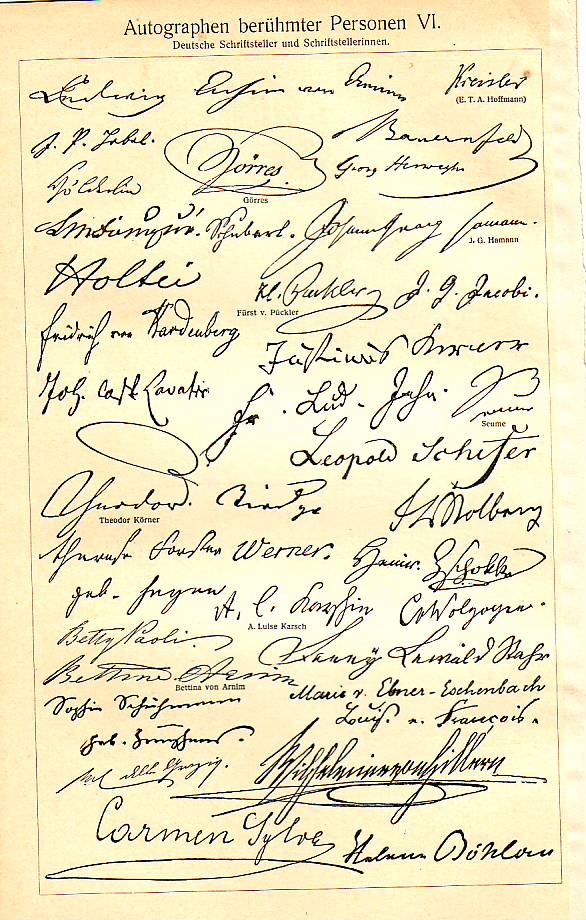 Autographen berühmter Personen VI.
Deutsche Schriftsteller und Schriftstellerinnen.
Ludwig Achim von Arnim Kreisler
(E. T. A. Hoffmann)
J. P. Hebel. Görres. Bauernfeld
Görres
Hölderlin Georg Herwegh
Schubart. Johann Georg Hamann.
J. G. Hamann
Holtei
Fürst v. Pückler
J. G. Jacobi.
Fridrich von Hardenberg
Justinus Kerner
Joh. Casp. Lavater
Fr. Lud. Jahn. Seume
Seume
Leopold Schefer
Theodor
Theodor Körner
Stolberg
Therese Forster Werner. Heinr. Zschokke
geb. Heyne A. L. Karschin CvWolzogen.
A. Luise Karsch
Betty Paoli. Fanny Lewald Stahr
Bettine Arnim
Bettina von Arnim
Marie v. Ebner-Eschenbach
Louise v. François.
Wilhelmine von Hillern
Carmen Sylva Helene Böhlau